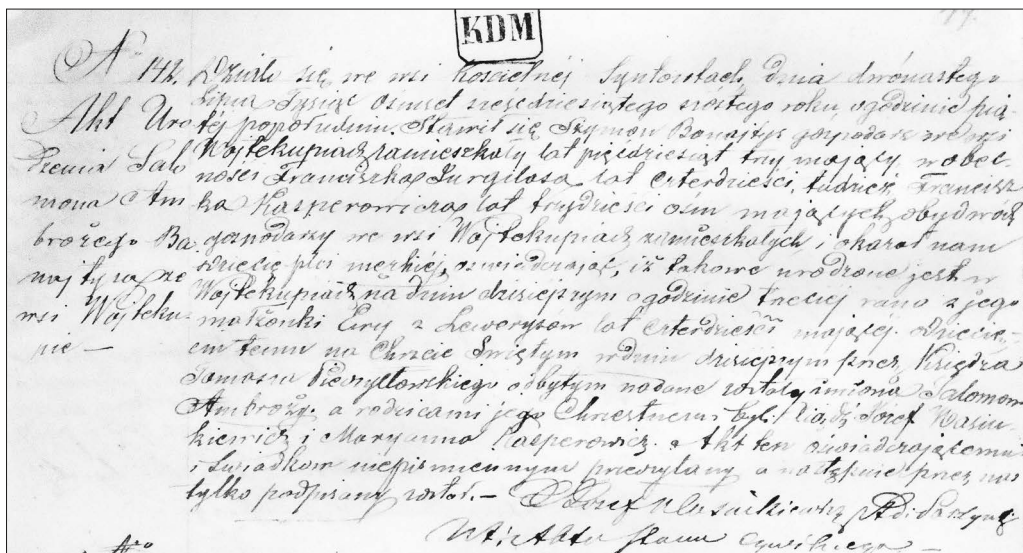 KDM
77.
No 142.
Akt Uro
dzenia Salo
mona Am
brożego Ba
najtysa ze
wsi Wojteku
pie —
Działo się we wsi Kościelnéj Syntowtach, dnia dwónastego
Lipca Tysiąc Ośmset sześćdziesiątego szóstego roku, o godzinie pią
téj popołudniu. Stawił się Szymon Banajtys gospodarz we wsi
Wojtekupiach zamieszkały lat pięćdziesiąt trzy mający w obec
ności Franciszka Jurgilasa lat czterdzieści, tudzież Francisz
ka Kasperowicza lat trzydzieści ośm mających, obydwóch
gospodarzy we wsi Wojtekupiach zamieszkałych, i okazał nam
dziecię płci męzkiej, oświadczając, iż takowe urodzone jest w
Wojtekupiach na dniu dzisiejszym o godzinie trzeciej rano z jego
małżonki Ewy z Lewerysów lat czterdzieści mającej. Dziecię
ciu temu na Chrzcie Świętym w dniu dzisiejszym przez Księdza
Tomasza odbytym nadane zostały imiona Salomon
Ambroży, a rodzicami jego Chrzestnemi byli Xiądz Józef Wasiu
kiewicz i Maryanna Kasperowicz. Akt ten oświadczającemu
i Świadkom niepiśmiennym przeczytany, a następnie przez nas
tylko podpisany został. — X Józef Wasiutkiewicz
Urzędnik Stanu Cywilnego —
No